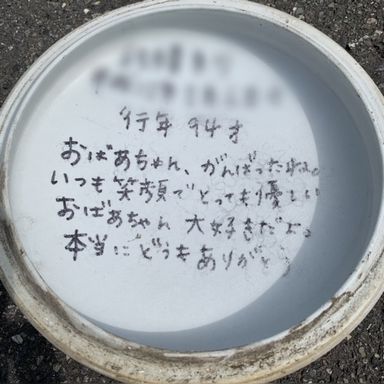 行年 94才
おばあちゃん、がんばったね。
いつも笑顔でとっても優しい
おばあちゃん 大好きだよ。
本当にどうもありがとう